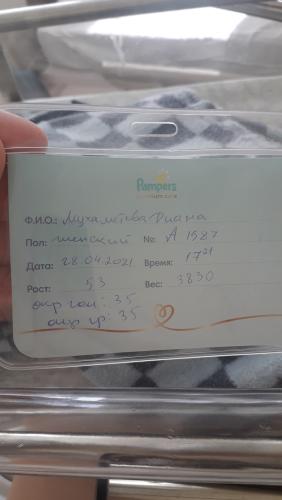 Pampers
premium care
Ф.И.О.: Мухаметова Диана
Пол: женский №: А 1587
Дата: 28.04.2021 Время: 17 21
Рост: 53 Вес: 3830
окр гол: 35
окр гр: 35